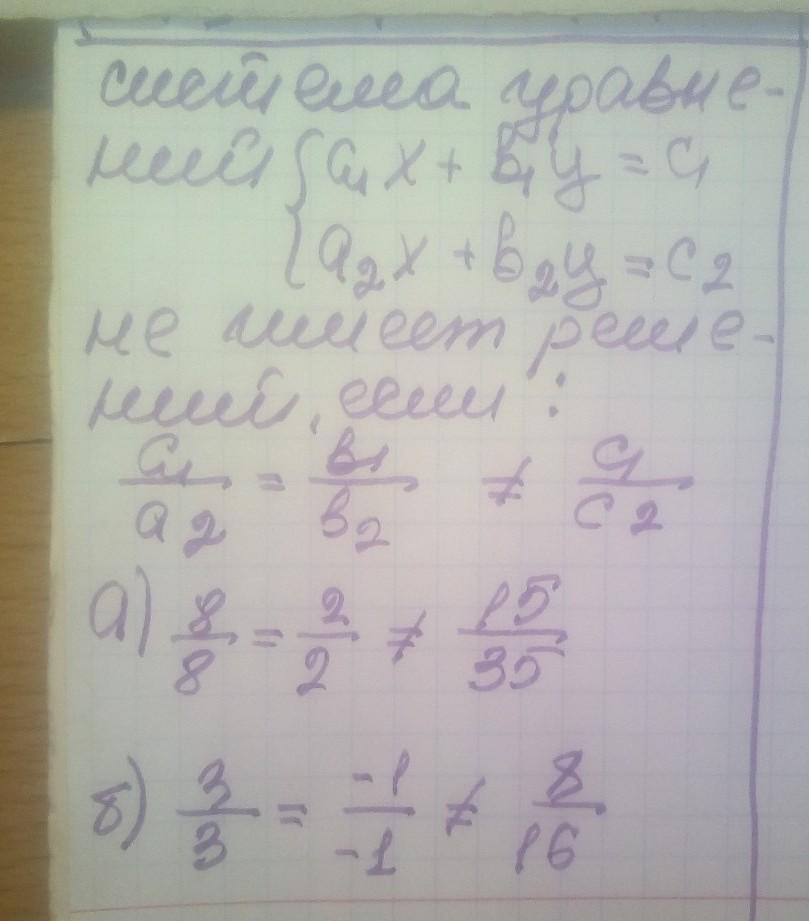 система уравне-
ний { a₁x + b₁y = c₁
a₂x + b₂y = c₂
не имеет реше-
ний, если :
a₁/a₂ = b₁/b₂ ≠ c₁/c₂
а) 8/8 = 2/2 ≠ 15/35
б) 3/3 = -1/-1 ≠ 8/16